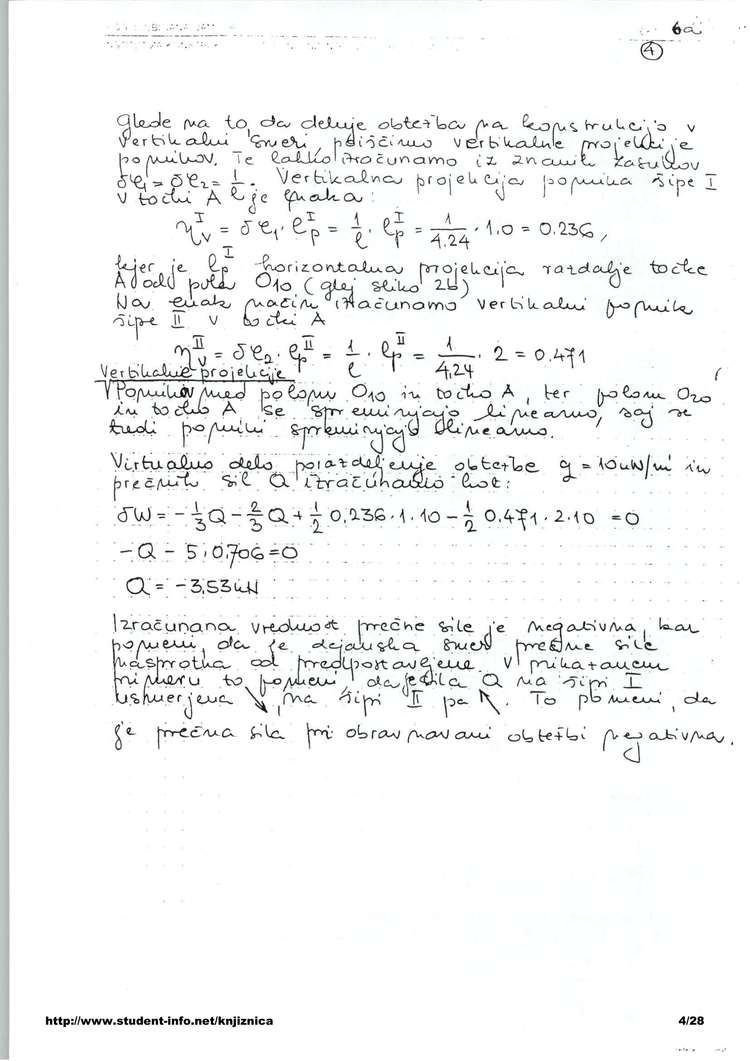 6a
4
Glede na to, da deluje obtežba na konstrukcijo v
vertikalni smeri, poiščimo vertikalne projekcije
pomikov. Te lahko izračunamo iz znanih zasukov
δφ₁ = δφ₂ = 1/l. Vertikalna projekcija pomika šipe I
v točki A je enaka:
η_v^I = δφ₁ · l_p^I = 1/l · l_p^I = 1/4.24 · 1.0 = 0.236,
kjer je l_p^I horizontalna projekcija razdalje točke
A od pola O10 (glej sliko 2b)
Na enak način izračunamo vertikalni pomik
šipe II v točki A
η_v^II = δφ₂ · l_p^II = 1/l · l_p^II = 1/4.24 · 2 = 0.471
Vertikalne projekcije
Pomikov med polom O10 in točko A, ter polom O20
in točko A se spreminjajo linearno, saj se
tudi pomiki spreminjajo linearno.
Virtualno delo porazdeljene obtežbe q = 10kN/m' in
prečnih sil Q izračunamo kot:
δW = -1/3 Q - 2/3 Q + 1/2 0,236 · 1 · 10 - 1/2 0.471 · 2 · 10 = 0
-Q - 5 · 0,706 = 0
Q = -3,53 kN
Izračunana vrednost prečne sile je negativna, kar
pomeni, da je dejanska smer prečne sile
nasprotna od predpostavljene. V prikazanem
primeru to pomeni, da je sila Q na šipi I
usmerjena ↘, na šipi II pa ↖. To pomeni, da
je prečna sila pri obravnavani obtežbi negativna.
http://www.student-info.net/knjiznica 4/28